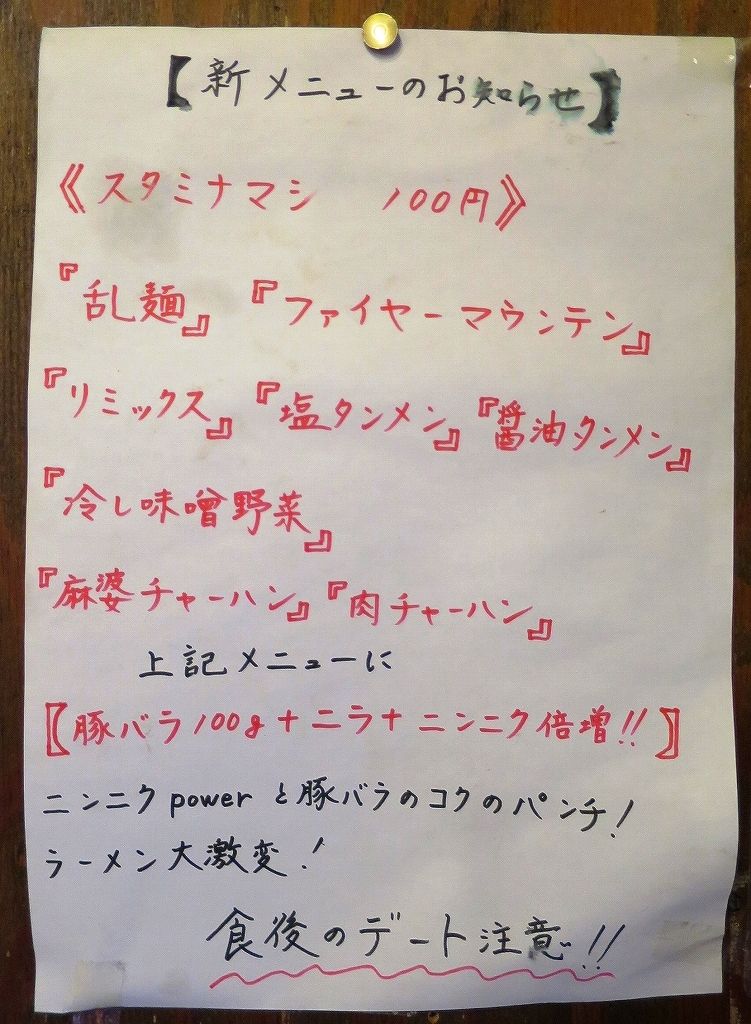 【新メニューのお知らせ】
《スタミナマシ 100円》
『乱麺』『ファイヤーマウンテン』
『リミックス』『塩タンメン』『醤油タンメン』
『冷し味噌野菜』
『麻婆チャーハン』『肉チャーハン』
上記メニューに
〖豚バラ100g+ニラ+ニンニク倍増!!〗
ニンニクpowerと豚バラのコクのパンチ!
ラーメン大激変!
食後のデート注意!!